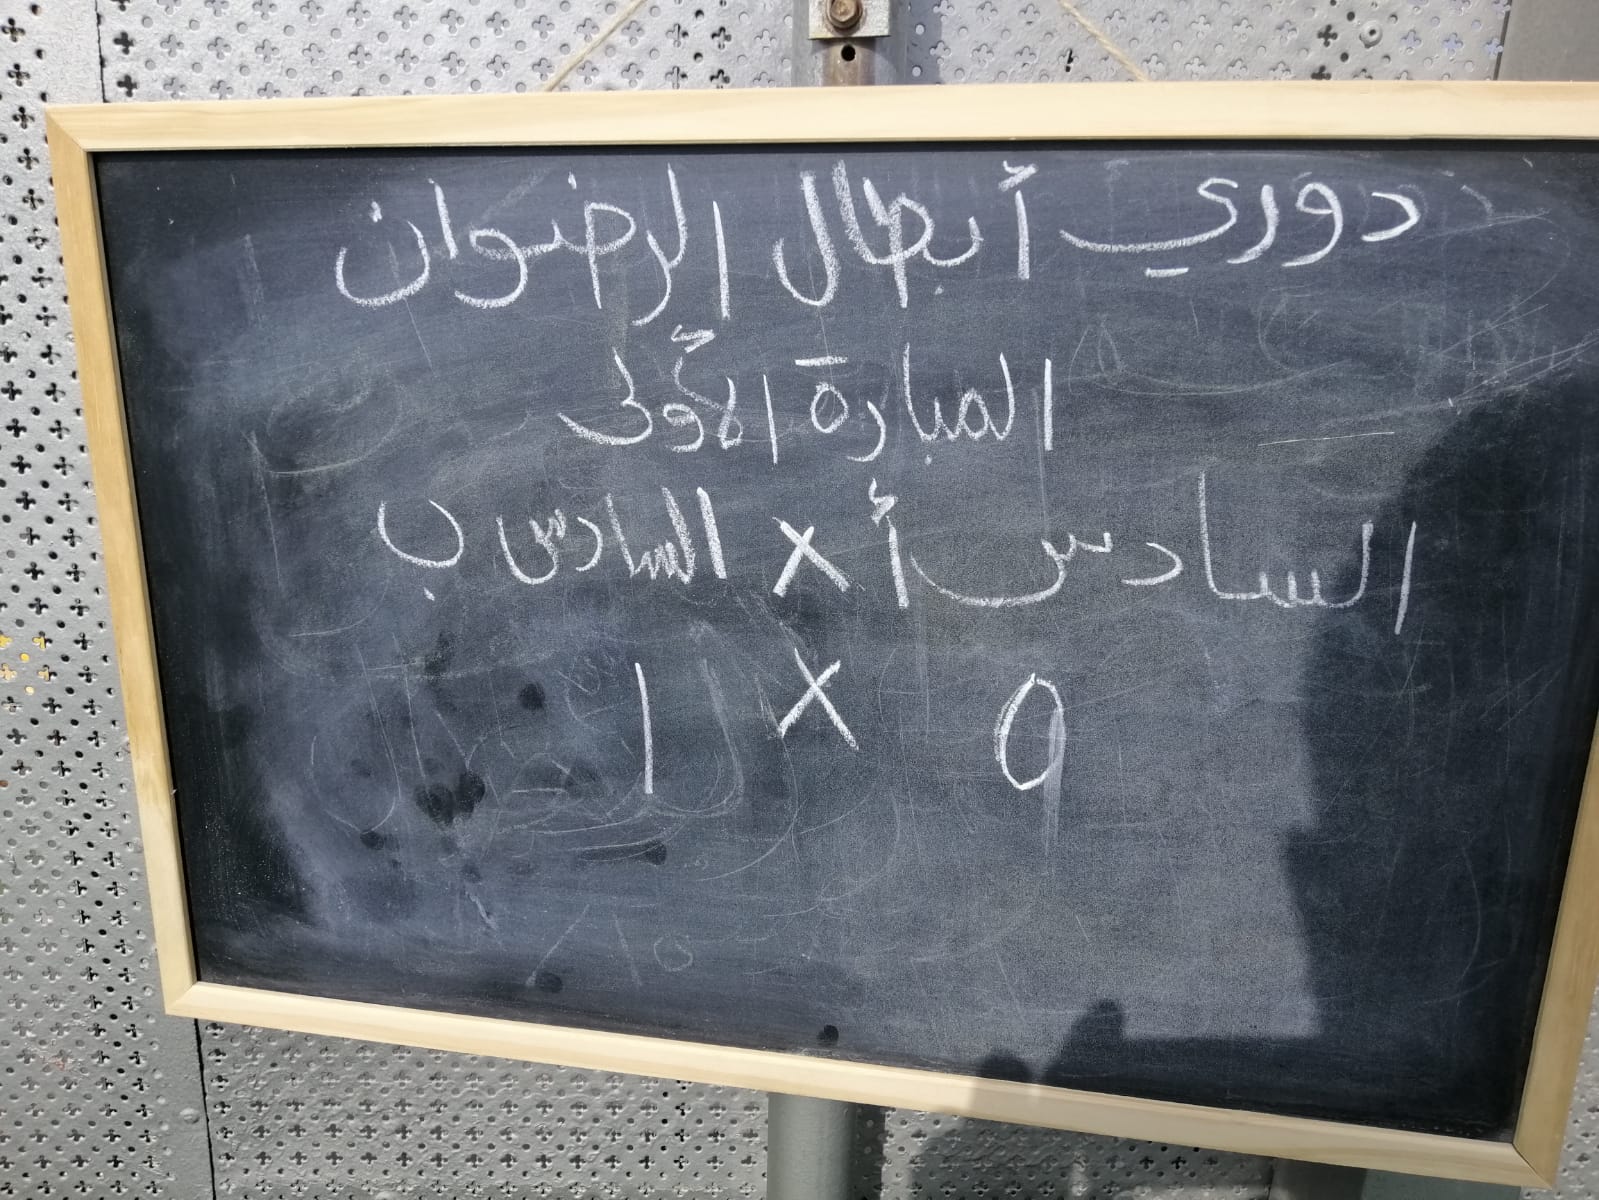 دوري أبطال الرضوان
المبارة الأولى
السادس أ × السادس ب
٥ × ١